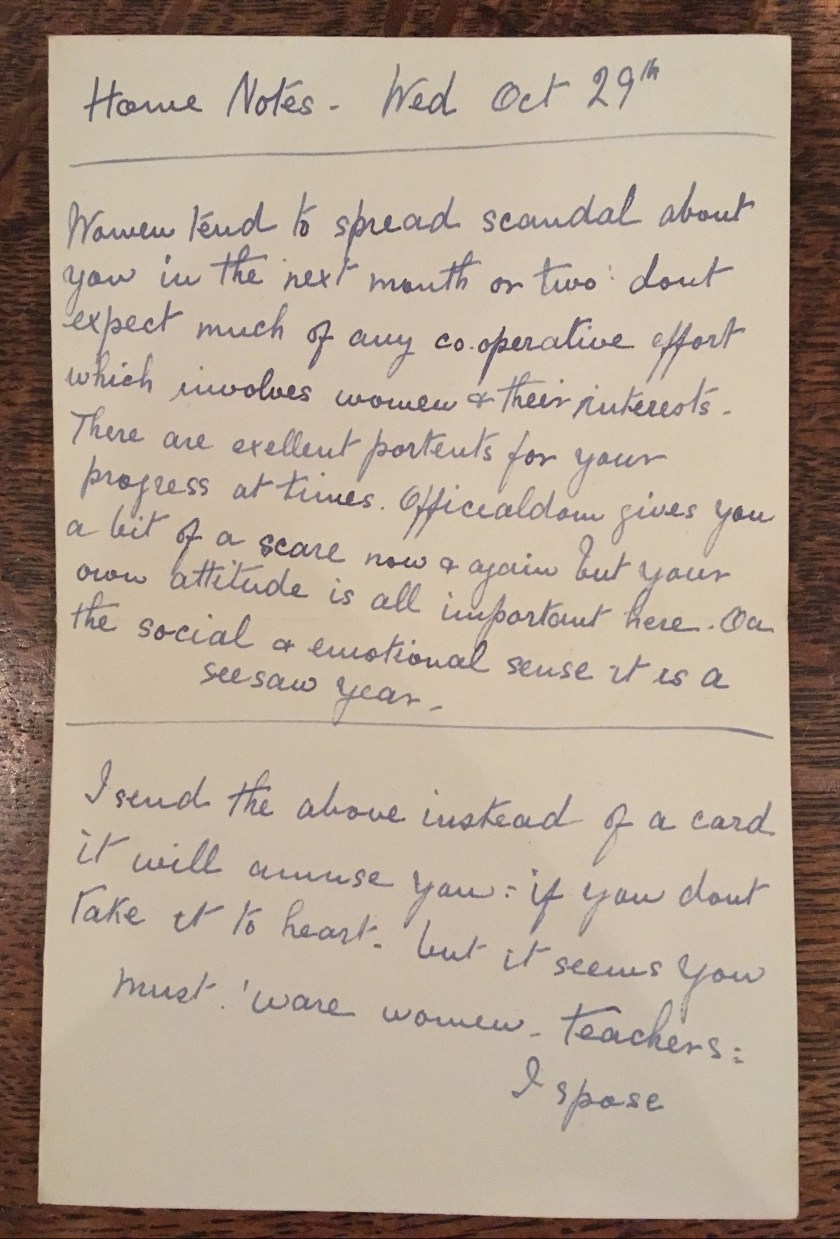 Home Notes - Wed Oct 29th
Women tend to spread scandal about
you in the next month or two: dont
expect much of any co.operative effort
which involves women & their interests.
There are exellent portents for your
progress at times. Officialdom gives you
a bit of a scare now & again but your
own attitude is all important here. On
the social & emotional sense it is a
seesaw year.
I send the above instead of a card
it will amuse you = if you dont
take it to heart. but it seems you
must. 'ware women - teachers =
I spose